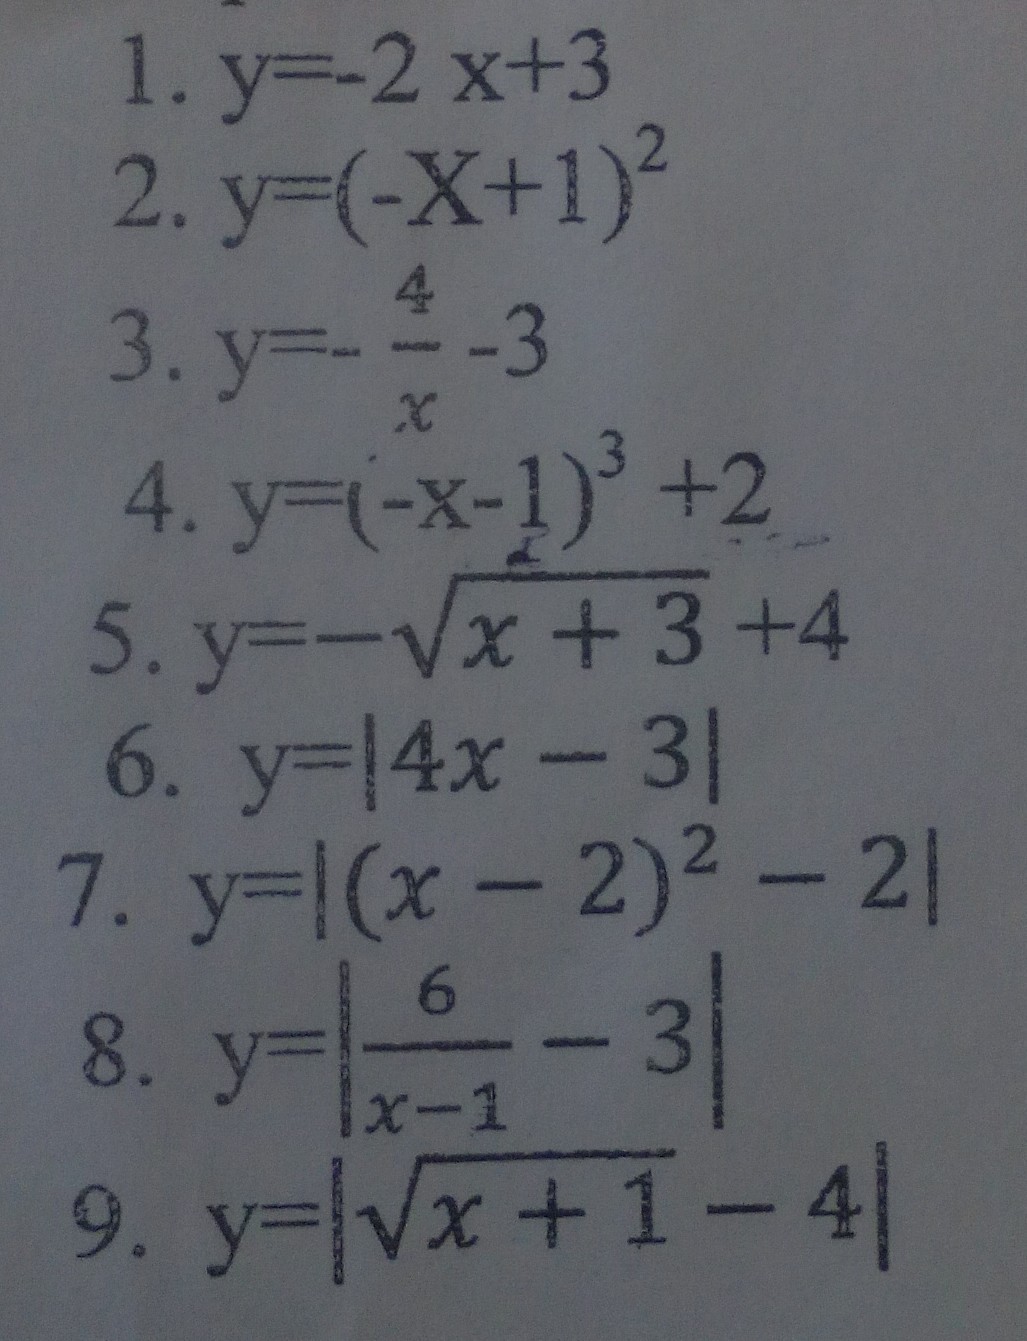 1. y=-2 x+3
2. y=(-X+1)²
3. y=- 4/x -3
4. y=(-x-1)³ +2
5. y=−√(x + 3) +4
6. y=|4x − 3|
7. y=|(x − 2)² − 2|
8. y=|6/(x−1) − 3|
9. y=|√(x + 1) − 4|